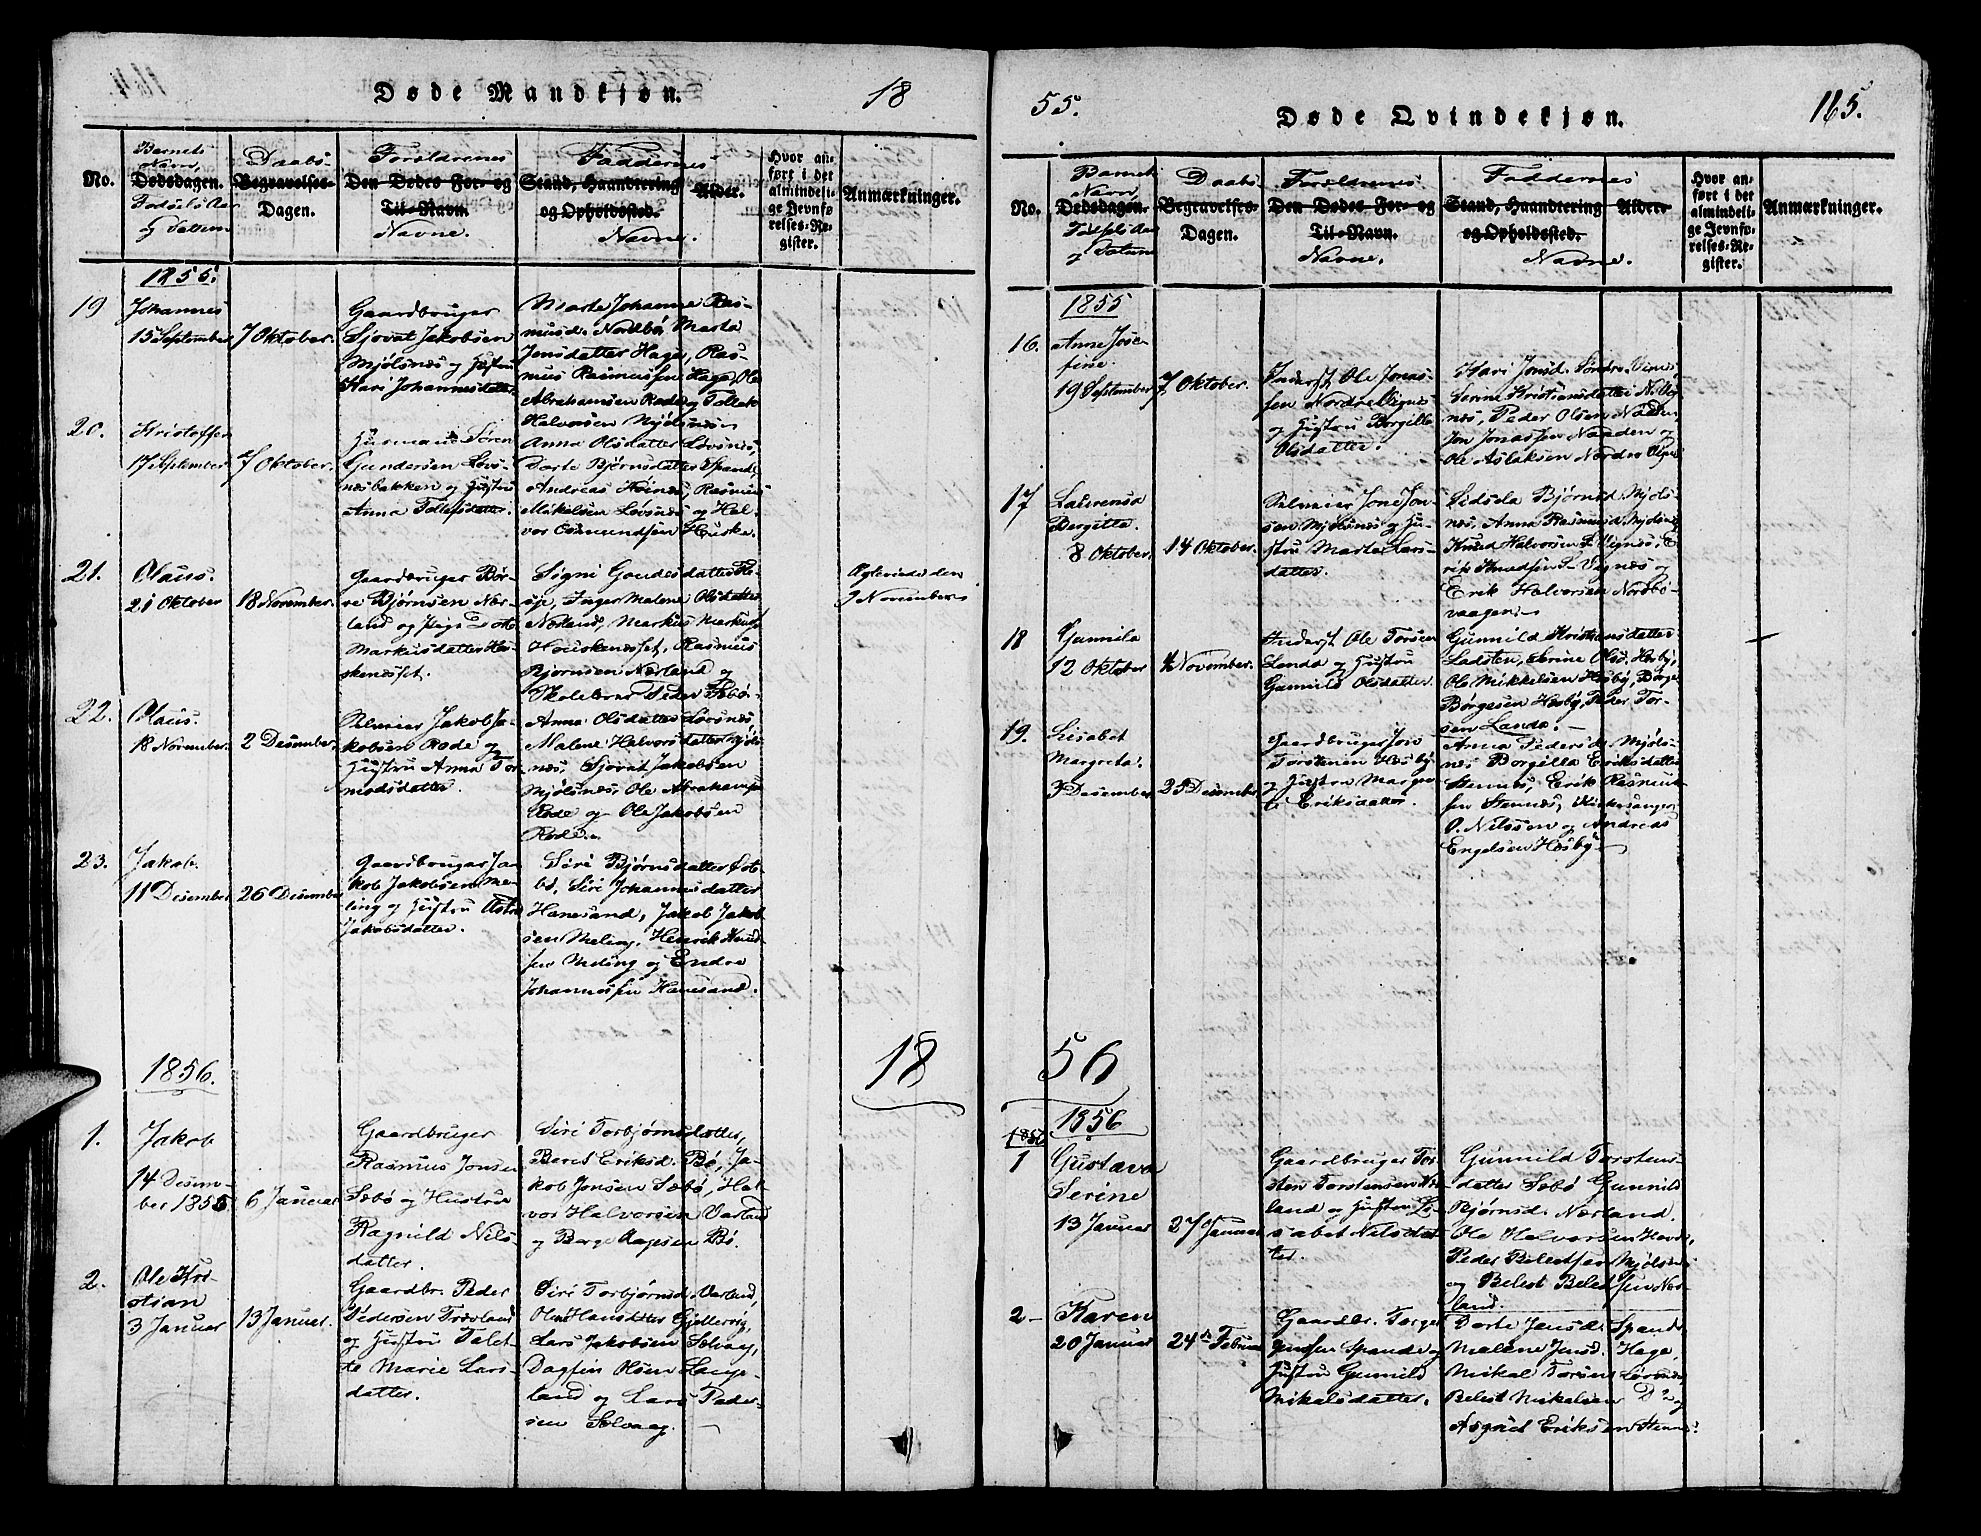 Døde Mandkjøn.
18
No.
Barnets
Navn,
Dødsdagen.
Fødsels Aar
og Datum
Daabs-
Begravelses-
Dagen.
Forældrenes
Den Dødes For- og
Til-Navn.
Navne.
Faddernes
Stand, Haandtering
og Opholdssted.
Navne.
Alder.
Hvor an-
ført i det
almindeli-
ge Jevnfø-
relses-Re-
gister.
Anmærkninger.
1855.
19
Johannes
15 September
7 Oktober.
Gaardbruger
Sjovat Jakobsen
Mjølsnes og Hustru
Kari Johannesdatter
Marte Johanne Ras-
musd. Nordbø, Marta
Jensdatter Hage, Ras-
mus Rasmussen Hage, Ole
Abrahamsen Rode og Tollak
Halvorsen Mjølsnes
20.
Kristoffer
17 September
7 Oktober.
Husmand Søren
Gundersen Løvs-
næsbakken og Hustru
Anna Tollefsdatter.
Anna Olsdatter Løvsnes,
Dorte Bjørnsdatter Spande
Andreas Høines, Rasmus
Mikelsen Løvsnes og Hal-
vor Osmundsen Heuske.
21.
Olaus.
21 Oktober
18 November.
Gaardbruger Bør-
re Bjørnsen Nør-
land og
Markusdatter Hes-
kenesset.
Signi Gaudesdatter
Inger Malene Olsdatter
Nørland, Markus Markuss.
Houskenesset, Rasmus
Bjørnsen Nærland og
Skolelærer Peder Sæbø.
9 November
22.
Olaus.
18 November.
2 Desember.
Selveier Jakob Ja-
kobsen Rode og
Hustru Anna Tor-
modsdatter.
Anna Olsdatter Løvsnes,
Malene Halvorsdatter Mjøls-
nes, Sjovat Jakobsen
Mjølsnes, Ole Abrahams.
Rode og Ole Jakobsen
Rode.
23.
Jakob
11 Desember
26 Desember
Gaardbruger Ja-
kob Jakobsen Me-
ling og Hustru
Jakobsdatter.
Siri Bjørnsdatter Øst-
bø, Siri Johannesdatter
Hanesand, Jakob Jakob-
sen Meling, Henrik Knud-
sen Meling og Endre
Johannessen Hanesand.
1856.
18
1.
Jakob
14 Desem-
ber 1855
6 Januar
Gaardbruger
Rasmus Jonsen
Sæbø og Hustru
Ragnild Nils-
datter.
Siri Torbjørnsdatter,
Beret Eriksd. Bø, Ja-
kob Jonsen Sæbø, Hal-
vor Halvorsen Varland
og Børge Aagesen Bø.
2.
Ole Kri-
stian
3 Januar
13 Januar.
Gaardbr. Peder
Pedersen
og Hustru Talet-
te Marie Lars-
datter.
Siri Torbjørnsd. Varland,
Oline Hansdatter Gjellervig,
Lars Jakobsen Solvaag,
Dagfin Olsen Lange-
land og Lars Peder-
sen Solvaag.
55.
Døde Qvindekjøn.
165.
No.
Barnets
Navn
Dødsdagen.
og Datum
Daabs
Begravelses-
Dagen.
Forældrenes
Den Dødes For- og
Til-Navn.
Navne.
Faddernes
Stand, Haandtering
og Opholdssted.
Navne.
Alder.
Hvor an-
ført i det
almindeli-
ge Jevnfø-
relses-Re-
gister.
Anmærkninger.
1855
16.
Anne Jose-
fine.
19 September
7 Oktober.
Inderst Ole Jonas-
sen Nordre Vignes
og Hustru Borgille
Olsdatter.
Kari Jonsd. Søndre Vignes,
Serine Kristiansdatter N. Vig-
nes, Peder Olsen Naaden
Jon Jonassen Naaden og
Ole Aslaksen Nordre Vignes
17
Laurensa
Bergitta.
8 Oktober.
14 Oktober.
Selveier Jone Jon-
sen Mjølsnes og Hu-
stru Marta Lars-
datter.
Sidsela Bjørnsd. Mjøls-
nes, Anna Rasmusd. Mjølsnes
Knud Halvorsen S. Vignes, E-
rik Knudsen S. Vignes og
Erik Halvorsen Nordbø-
vaagen.
18
Gunnila
12 Oktober
4 November.
Inderst Ole Torsen
Landa og Hustru
Gunnild Olsdatter.
Gunnild Kristiansdatter
Ladsten, Serine Olsd. Hesby,
Ole Mikkelsen Hesby, Børge
Børgesen Hesby, Peder Tor-
sen Landa.
19.
Lisabet
Margreta.
3 Desember
23 Desember
Gaardbruger Jon
Torstensen Hesby
og Hustru Margre-
te Eriksdatter.
Anna Pedersd. Mjøls-
nes Borgilla Eriksdatter
Stennes, Erik Rasmus-
sen Stennes, Kirkesanger
O. Nilssen og Andreas
Engelsen Hesby
56
1856
1856
1
Gustava
Serine
13 Januar
27 Januar
Gaardbruger Tor-
sten Torstensen Nær-
land og Hustru Li-
sabet Nilsdat-
ter.
Gunnild Torstens-
datter Sebø Gunnild
Bjørnsd. Nærland.
Ole Halvorsen
Peder Belestsen Mjølsnes
og Belest Belestsen Nær-
land.
2
Karen
20 Januar
24de Februar
Gaardbr. Torge
Spande og
Hustru Gunnild
Mikalsdatter.
Dorte Jensd. Spande,
Malene Jensd. Hage,
Mikal Torsen Løvsnes
Belest Mikelsen Do og
Asgaut Eriksen Stennes.